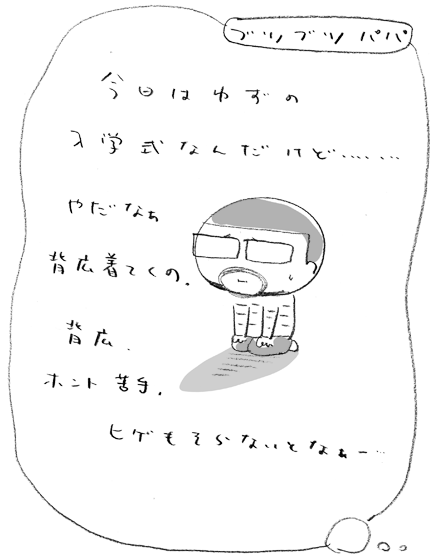 ブツブツ パパ
今日はゆずの
入学式なんだけど……
やだなぁ
背広着てくの.
背広.
ホント苦手.
ヒゲもそらないとなぁー…